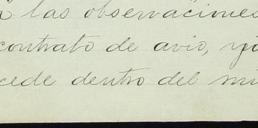 las observaciones
contrato de avio, y
cede dentro del